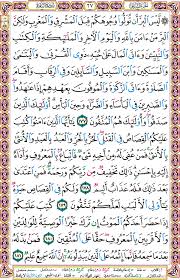 ٢٧
لَّيْسَ الْبِرَّ أَن تُوَلُّوا وُجُوهَكُمْ قِبَلَ الْمَشْرِقِ وَالْمَغْرِبِ وَلَٰكِنَّ
الْبِرَّ مَنْ ءَامَنَ بِاللَّهِ وَالْيَوْمِ الْءَاخِرِ وَالْمَلَٰئِكَةِ وَالْكِتَٰبِ
وَالنَّبِيِّنَ وَءَاتَى الْمَالَ عَلَىٰ حُبِّهِ ذَوِى الْقُرْبَىٰ وَالْيَتَٰمَىٰ
وَالْمَسَٰكِينَ وَابْنَ السَّبِيلِ وَالسَّائِلِينَ وَفِى الرِّقَابِ وَأَقَامَ
الصَّلَوٰةَ وَءَاتَى الزَّكَوٰةَ وَالْمُوفُونَ بِعَهْدِهِمْ إِذَا عَٰهَدُوا
وَالصَّٰبِرِينَ فِى الْبَأْسَاءِ وَالضَّرَّاءِ وَحِينَ الْبَأْسِ أُولَٰئِكَ
الَّذِينَ صَدَقُوا وَأُولَٰئِكَ هُمُ الْمُتَّقُونَ ١٧٧ يَٰأَيُّهَا الَّذِينَ ءَامَنُوا كُتِبَ
عَلَيْكُمُ الْقِصَاصُ فِى الْقَتْلَى الْحُرُّ بِالْحُرِّ وَالْعَبْدُ بِالْعَبْدِ وَالْأُنثَىٰ
بِالْأُنثَىٰ فَمَنْ عُفِىَ لَهُ مِنْ أَخِيهِ شَىْءٌ فَاتِّبَاعٌ بِالْمَعْرُوفِ وَأَدَاءٌ
إِلَيْهِ بِإِحْسَٰنٍ ذَٰلِكَ تَخْفِيفٌ مِّن رَّبِّكُمْ وَرَحْمَةٌ فَمَنِ اعْتَدَىٰ
بَعْدَ ذَٰلِكَ فَلَهُ عَذَابٌ أَلِيمٌ ١٧٨ وَلَكُمْ فِى الْقِصَاصِ حَيَوٰةٌ
يَٰأُولِى الْأَلْبَٰبِ لَعَلَّكُمْ تَتَّقُونَ ١٧٩ كُتِبَ عَلَيْكُمْ
إِذَا حَضَرَ أَحَدَكُمُ الْمَوْتُ إِن تَرَكَ خَيْرًا الْوَصِيَّةُ لِلْوَٰلِدَيْنِ
وَالْأَقْرَبِينَ بِالْمَعْرُوفِ حَقًّا عَلَى الْمُتَّقِينَ ١٨٠ فَمَن بَدَّلَهُ
بَعْدَ مَا سَمِعَهُ فَإِنَّمَا إِثْمُهُ عَلَى الَّذِينَ يُبَدِّلُونَهُ إِنَّ اللَّهَ سَمِيعٌ عَلِيمٌ ١٨١